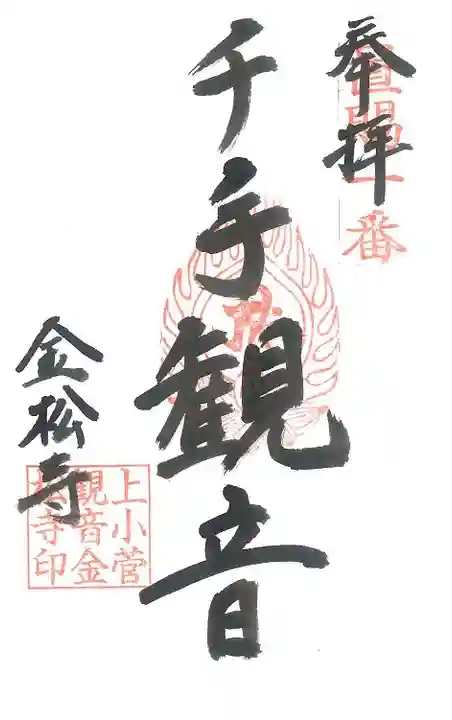 奉拝
番
千手観音
金松寺
上小菅
観音金
松寺印